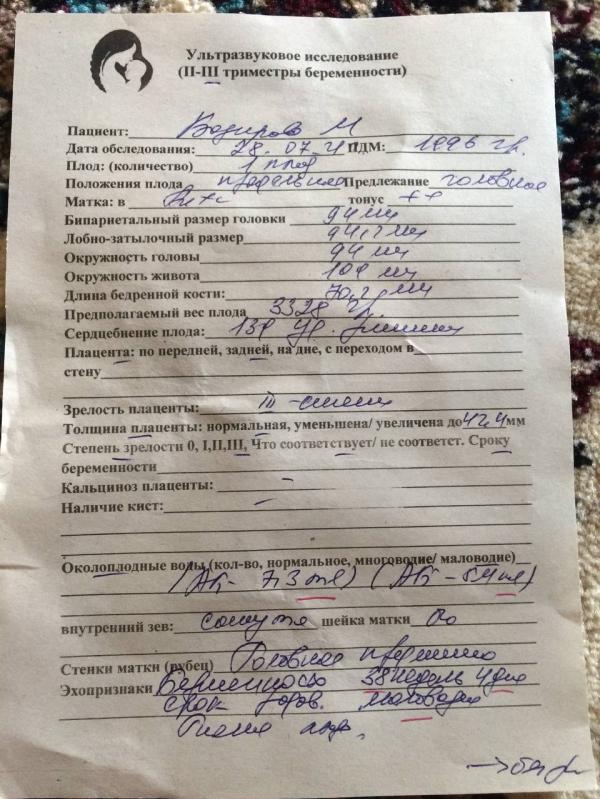 Ультразвуковое исследование
(II-III триместры беременности)
Пациент: М
Дата обследования: 28.07. ПДМ: 1996 г.
Плод: (количество) 1 плод
Положения плода продольное Предлежание головное
Матка: в тонус ++
Бипариетальный размер головки 94 мм
Лобно-затылочный размер мм
Окружность головы 94 мм
Окружность живота 101 мм
Длина бедренной кости: мм
Предполагаемый вес плода 3328 гр.
Сердцебиение плода: уд. в минуту
Плацента: по передней, задней, на дне, с переходом в
стену
Зрелость плаценты: III -степени
Толщина плаценты: нормальная, уменьшена/ увеличена до 42,4 мм
Степень зрелости 0, I,II,III, Что соответствует/ не соответст. Сроку
беременности
Кальциноз плаценты: -
Наличие кист: -
Околоплодные воды (кол-во, нормальное, многоводие/ маловодие)
внутренний зев: сомкнут шейка матки
Стенки матки (рубец) Головное предлежание
Эхопризнаки Беременность 38 недель 4 дня
срок маловодие